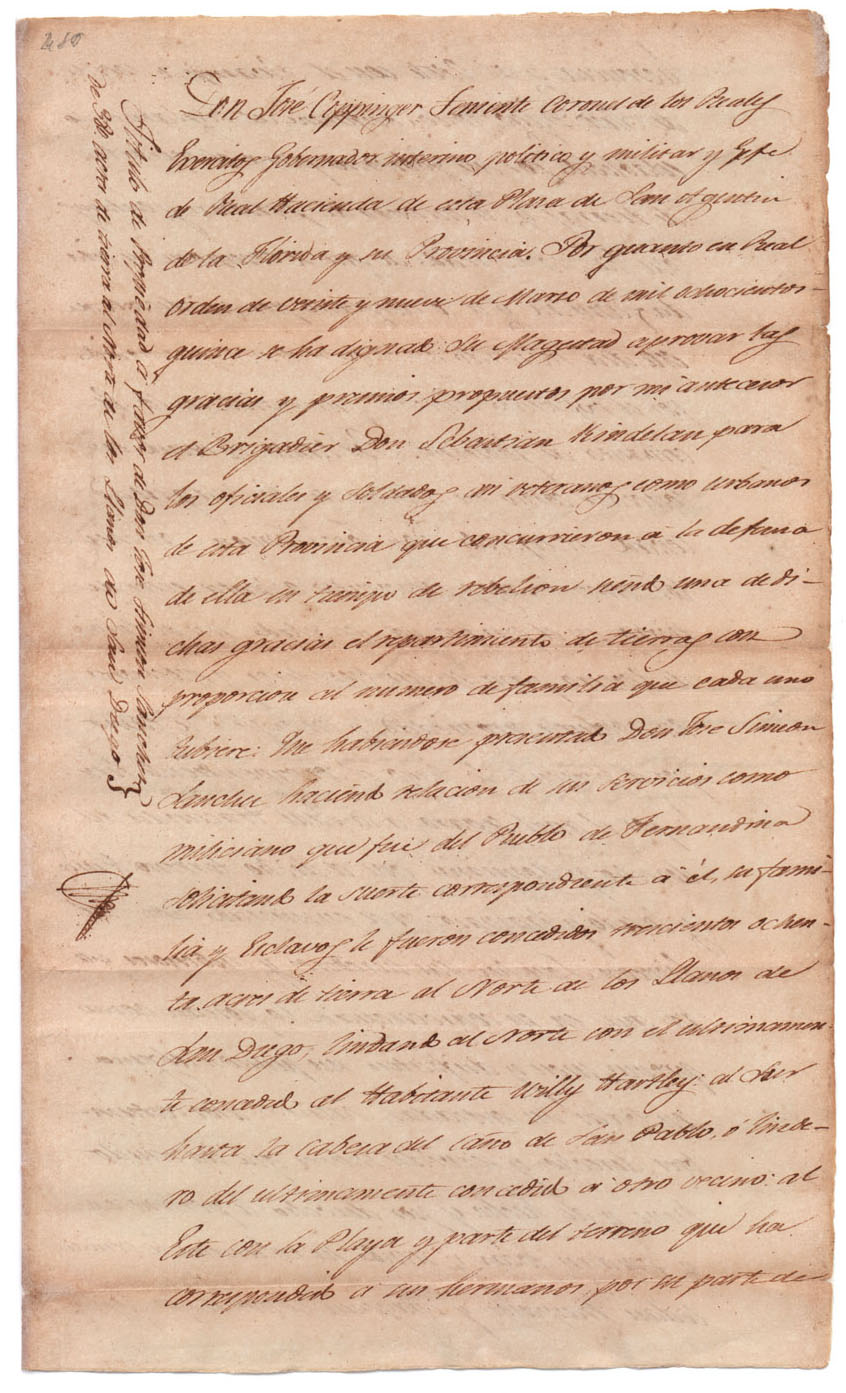 Titulo de Propiedad á favor de Don Jose Simeon Sanchez
de 380 acres de tierra al Norte de los Llanos de San Diego
Don José Coppinger Teniente Coronel de los Reales
Exercitos Gobernador interino, politico y militar y Gefe
de Real Hacienda de esta Plaza de San Agustin
de la Florida y su Provincia. Por quanto en Real
orden de veinte y nueve de Marzo de mil ochocientos
quince se ha dignado Su Magestad aprovar las
gracias y premios, propuestos por mi antecesor
el Brigadier Don Sebastian Kindelan para
los oficiales y soldados asi veteranos como urbanos
de esta Provincia que concurrieron á la defensa
de ella en tiempo de rebelion siendo una de di-
chas gracias el repartimiento de tierras con
proporcion al numero de familia que cada uno
tubiere: Que habiendose presentado Don Jose Simeon
Sanchez haciendo relacion de sus servicios como
miliciano que fue del Pueblo de Fernandina
solicitando la suerte correspondiente á él, su fami-
lia y Esclavos le fueron concedidos trescientos ochen-
ta acres de tierra al Norte de los Llanos de
San Diego, lindando al Norte con el ultimamen-
te concedido al Habitante Willy Hartley: al Sur
hasta la cabeza del caño de San Pablo, ó linde-
ro del ultimamente concedido á otro vecino: al
Este con la Playa y parte del terreno que ha
correspondido á sus hermanos por su parte de